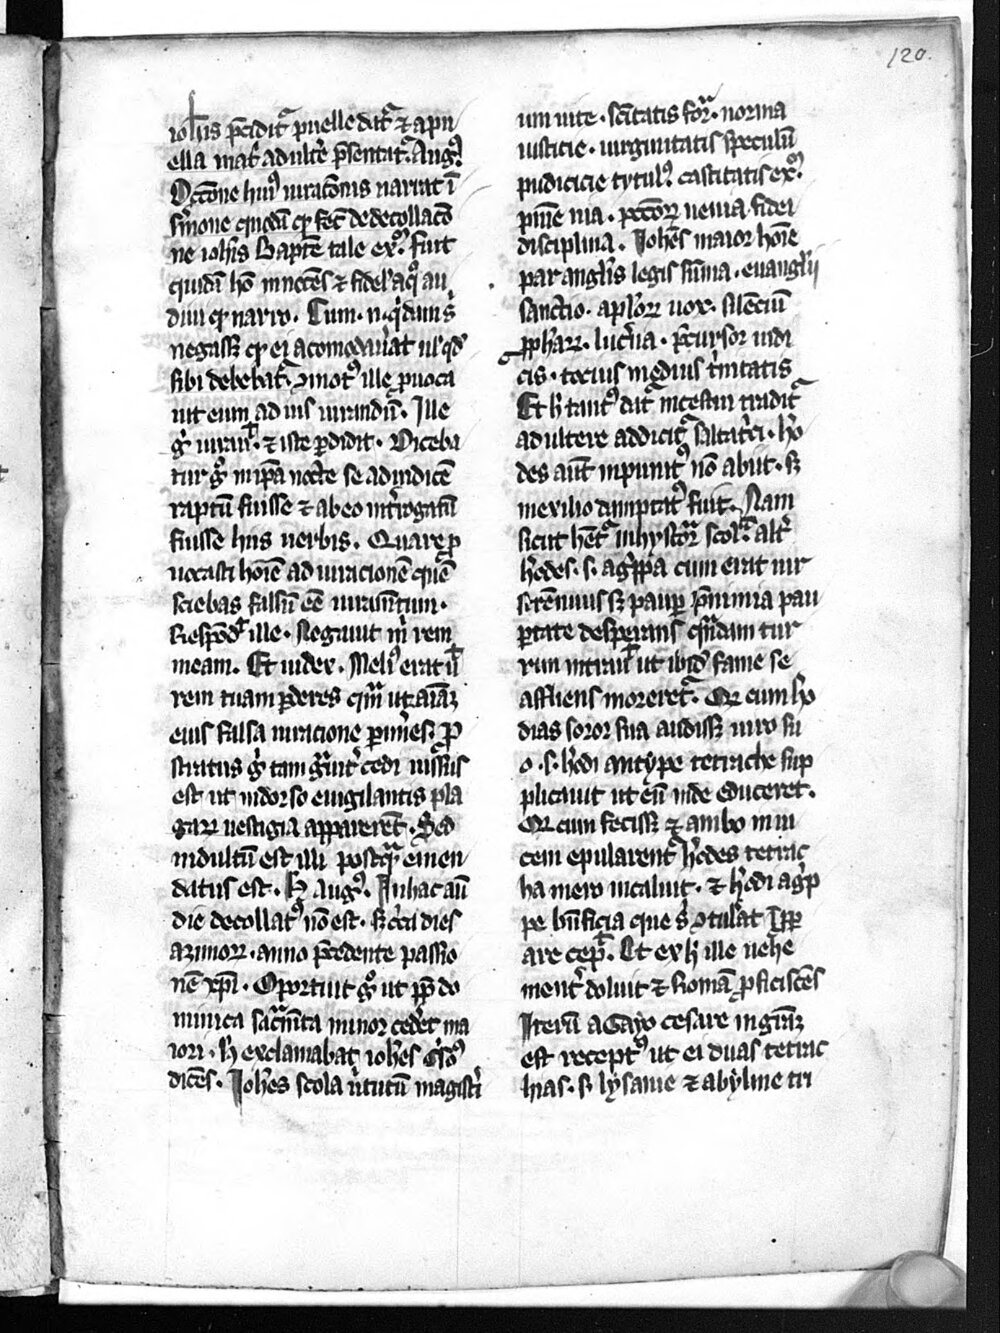 120.
ioh̄is p̄ciditᷣ puelle datᷣ ⁊ a pu
ella mat̓ adult̓e p̄sentatᷣ. Aug⁹.
Occōne hui⁹ iuracōnis narrat ī
s̓mone quodā qē fec̄ de decollacō
ne ioh̄is Bap̄te tale ex̊. fuit
quidā hō innocēs ⁊ fidel̓ a q̊ au
diui qē narro. Cum .n. q̓dam s̓
negass̄ qē ei acomodau̓at ul̓ qd̓
sibi debebatᷣ ꝯmot⁹ ille ꝓuoca
uit eum ad ius iurandū. Ille
g̊ iurauit. ⁊ iste ꝑdidit. Diceba
tur g̊ in ip̄a nocte se ad iudicē
raptū fuisse ⁊ ab eo int̓rogatū
fuisse hiis uerbis. Quare ꝓ
uocasti hoīem ad iuracionē quē
sciebas falsū eē iuraturum.
Respōd̓ ille. Negauit m̄ rem
meam. Et iudex. Meli⁹ erat ut
rem tuam ꝑderes qᷓm ut aīaꝫ
eius falsa iuracione ꝑim̓es. P̄
stratus g̊ tam gᷓuit̓ cedi iussus
est ut in dorso euigilantis pla
gaꝝ uestigia apparerēt. Sed
indultū est illi postqᷓ emen
datus est. H̓ aug⁹. In hac aū
die decollat⁹ nō est. sꝫ c̓ca dies
azimoꝝ. anno p̄cedente passio
nē xp̄i. Oportuit g̊ ut ꝓp̄ do
minica sac̓mēta minor ced̓et ma
iori. h̓ exclamabat ioh̄es c̓sos⁹
dicēs. Ioh̄es scola u̓tutū magist̓i
um uite. sc̄itatis for̄. norma
iusticie. uirginitatis speculū
pudicicie tytul⁹. castitatis ex̊.
pnīe uia. pcc̄oꝝ uenia. fidei
disciplina. Ioh̄es maior hoīe
par angl̓is legis sūma. euanglij
sanctio. apl̓oꝝ uox. silenciū
ꝓph̄aꝝ. luc̓na. p̄cursor iudi
cis. tocius medius t̓nitatis
Et h̓ tant⁹ datᷣ incestui traditᷣ
adultere addicitᷣ saltat̓ci. h̓o
des aūt inpunit⁹ nō abiit. sꝫ
in exilio dāpnat⁹ fuit. Nam
sicut hētᷣ in hystor̄ scol̓. alt̓
h̓odes. s. ag̓ppa cum erat uir
strēnuus sꝫ paup̄ p̄ nimia pau
ꝑtate desperans qᷓndam tur
rim intrauit ut ibid̓ fame se
afficiens moreretᷣ. Qē cum h̓o
dias soror sua audiss̄ uiro su
o .s. h̓odi antype tetrarche sup
plicauit ut eū inde educeret.
Qē cum feciss̄ ⁊ ambo in in
cem epularentᷣ h̓odes tetrar
cha mero incaluit. ⁊ h̓odi ag̓p
pe bn̄ficia que s̓ ꝯtul̓at īꝓp
are cepit. Et ex h̓ ille uehe
ment̓ doluit ⁊ Romā ꝓficiscēs
Iterū a Gayo cesare in gr̄aꝫ
est recept⁹ ut ei duas tetrar
hias. s. lysanie ⁊ abyline tri